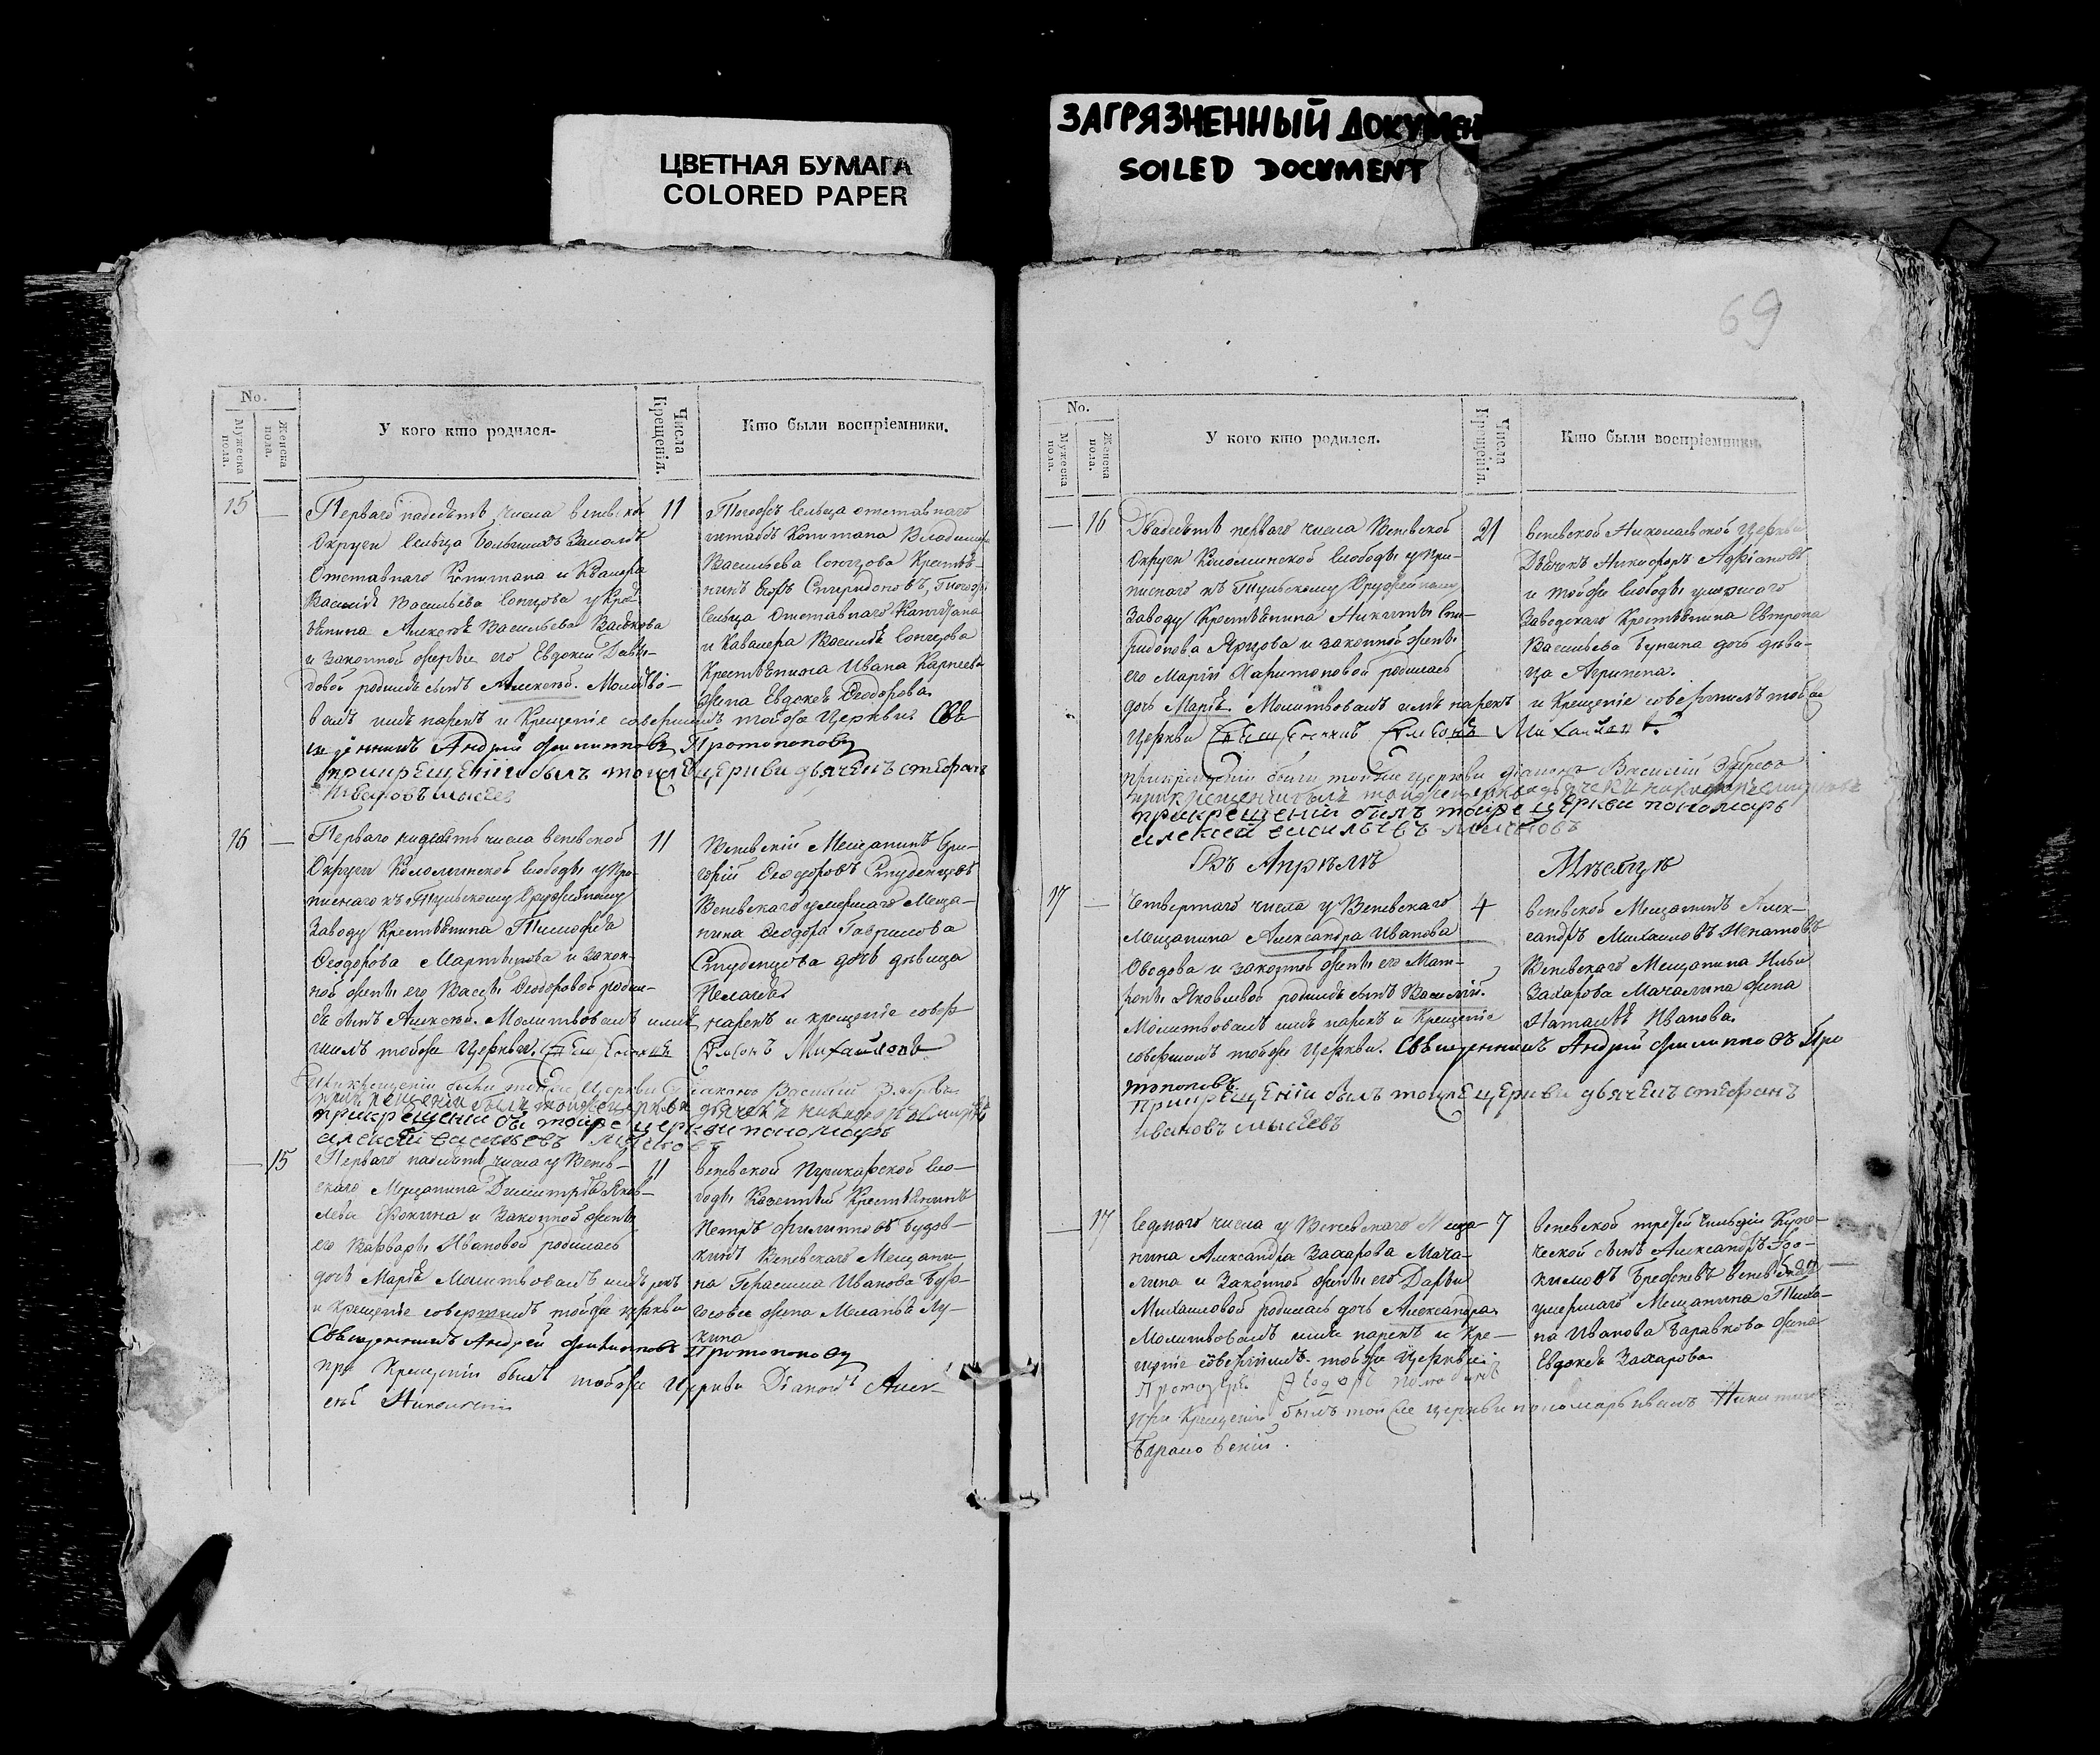 ЦВЕТНАЯ БУМАГА
COLORED PAPER
ЗАГРЯЗНЕННЫЙ ДОКУМЕН
SOILED DOCUMENT
69
No.
Мужеска пола.
Женска пола.
У кого кто родился.
Числа Крещенія.
Кто были воспріемники.
15
—
Перваго надесять числа веневской
Округи Сельца
Отставнаго Капитана и Кавалера
Василія Васильева Сонцова у Кре-
стьянина Алексѣя Васильева
и законной жены его Евдокіи Давы-
довой родился сынъ Алексѣй. Молитво-
валъ имя нарекъ и Крещеніе совершилъ тойже Церкви Свя
щенникъ Андрей Филипповъ Протопоповъ
при крещеніи былъ тойже церкви дьячекъ стефанъ
Ивановъ мысеев
11
Тогожъ Сельца отставнаго
штабъ Капитана Владимира
Васильева Сонцова Крестья-
нинъ Егоръ Спиридоновъ, Тогожъ
Сельца Отставнаго Капитана
и Кавалера Василія Сонцова
Крестьянина Ивана Карпова
жена Евдокія Ѳеодорова.
16
—
Перваго надесять числа веневской
Округи Коломинской Слободы у При-
писнаго къ Тульскому Оружейному
Заводу Крестьянина Тимофея
Ѳеодорова Мартынова и закон-
ной жены его Вассы Ѳеодоровой родил-
ся сынъ Алексѣй. Молитвовалъ имя нарекъ и крещеніе совер-
шилъ тойже Церкви. Священникъ Симеонъ Михайловъ
При крещеніи были тойже Церкви Діаконъ Василій
при крещеніи былъ тойже церкви дьячекъ никифоръ
при крещеніи бы тойже церкви пономарь
алексей васильевъ
11
Веневскій Мещанинъ Гри-
горій Ѳеодоровъ Студенцовъ
Веневскаго умершаго Меща-
нина Ѳеодора Гаврилова
Студенцова дочь дѣвица
Пелагея
—
15
Перваго надесять числа у Венев-
скаго Мещанина Димитрія Яков-
лева Фокина и Законной жены
его Варвары Ивановой родилась
дочь Марія Молитвовалъ имя рекъ
и Крещеніе совершилъ тойже церкви
Священникъ Андрей Филипповъ Протопоповъ
при Крещеніи былъ тойже Церкви Діаконъ Алек-
ей
11
веневской Пушкарской Сло-
боды Казенный Крестьянинъ
Петръ Филипповъ
Веневскаго Мещани-
на Герасима Иванова
жена Меланья Лу-
кина
No.
Мужеска пола.
Женска пола.
У кого кто родился.
Числа Крещенія.
Кто были воспріемники.
—
16
Двадесять перваго числа Веневской
Округи Коломинской Слободы у При-
писнаго къ Тульскому Оружейному
Заводу Крестьянина Никиты Спи-
ридонова Ярцова и законной жены
его Маріи Харитоновой родилась
дочь Марія. Молитвовалъ имя нарекъ и Крещеніе совершилъ тойже
Церкви Священникъ Симеонъ Михайловъ
при крещеніи были тойже церкви діаконъ Василій
при крещеніи былъ тойже церкви дьячекъ никифоръ
при крещеніи былъ тойже церкви пономарь
алексей васильевъ
21
веневской Николаевской Церкви
Дьячокъ Никифоръ
и тойже слободы умершаго
Заводскаго Крестьянина
Васильева Бунина дочь дѣви-
ца Агрипена.
Въ Апрѣлѣ Мѣсяцѣ
17
—
Четвертаго числа у Веневскаго
Мещанина Александра Иванова
Оводова и законной жены его Мат-
роны Яковлевой родился сынъ Василій.
Молитвовалъ имя нарекъ и Крещеніе
совершилъ тойже Церкви. Священникъ Андрей Филипповъ Про
топоповъ
При крещеніи былъ тойже церкви дьячекъ стефанъ
ивановъ мысеевъ
4
веневской Мещанинъ Алек-
сандръ Михаиловъ Игнатовъ
Веневскаго Мещанина Ильи
Захарова Мачалина жена
Наталья Иванова.
—
17
Седмаго числа у Веневскаго Меща-
нина Александра Захарова Мача-
лина и Законной жены его Дарьи
Михаиловой родилась дочь Александра
Молитвовалъ имя нарекъ и Кре-
щеніе совершилъ тойже Церкви
При Крещеніи былъ тойже церкви пономарь иванъ Никитинъ
7
веневской третей Гильдіи Купе-
ческой сынъ Александръ
умершаго Мещанина
Иванова жена
Евдокія Захарова